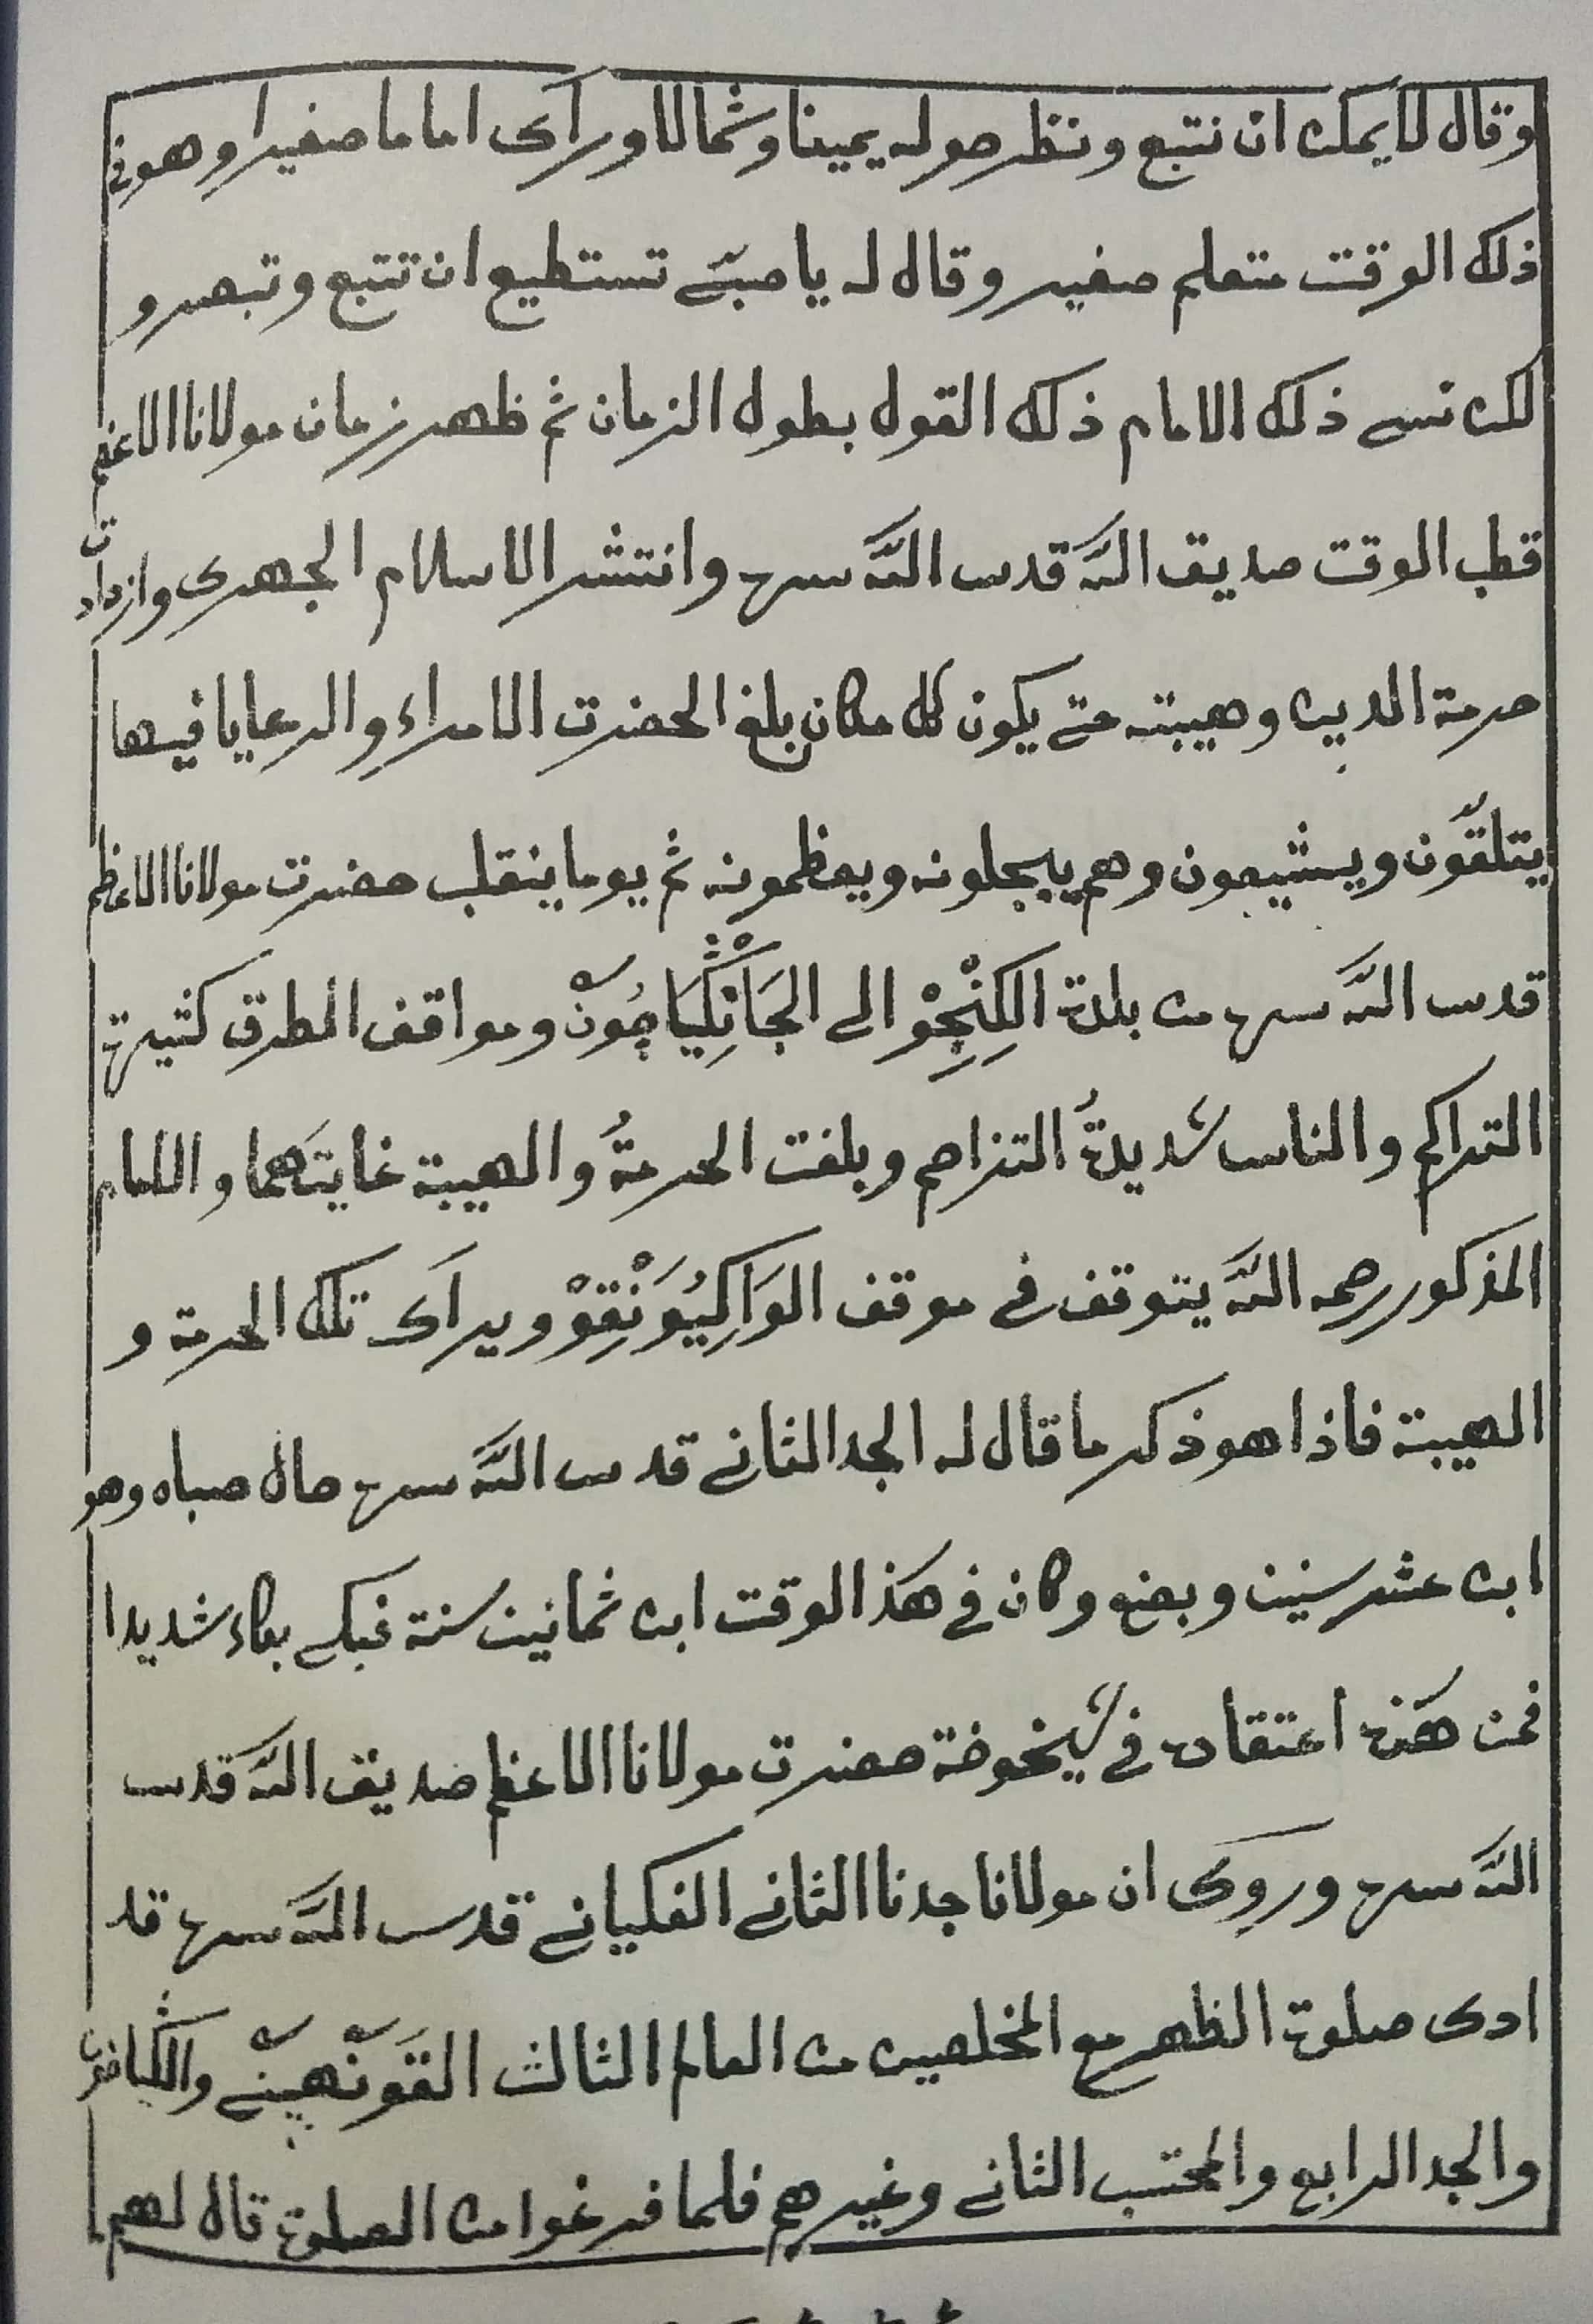 وقال لا يمكن ان نتبع وننظر حوله يمينا وشمالا وراى اماما صغيرا وهو في
ذلك الوقت متعلم صغير وقال له يا صبي تستطيع ان تتبع وتبصر و
لكن نسي ذلك الامام ذلك القول بطول الزمان ثم ظهر زمان مولانا الاعظم
قطب الوقت صديق الله قدس الله سره وانتشر الاسلام الجهرى وازدادت
حرمة الدين وهيبته حتى يكون كل مكان بلغ الحضرت الامراء والرعايا فيها
يتلقّون ويشيعون وهم يبجلونه ويعظمونه ثم يوما ينقلب حضرت مولانا الاعظم
قدس الله سره من بلدة الكِنْجِوْ الى الجَانْكِيَاچُوْنْ ومواقف الطرق كثيرة
التراكم والناس شديدةُ التزاحم وبلغت الحرمةُ والهيبة غايتَهما والامام
المذكور رحمه الله يتوقف في موقف الوَاكِيُوَنْقِوْ ويراى تلك الحرمة و
الهيبة فاذا هو ذكر ما قال له الجد الثاني قدس الله سره حال صباه وهو
ابن عشر سنين وبضع وكان في هذا الوقت ابن ثمانين سنة فبكى بكاء شديدا
فحن هذه اعتقاده في شيخوخة حضرت مولانا الاعظم صديق الله قدس
الله سره وروى ان مولانا جدنا الثاني الفكياني قدس الله سره قد
ادى صلوة الظهر مع المخلصين من العالم الثالث القَوَنْهِيْنّي
والجد الرابع والمحتسب الثاني وغيرهم فلما فرغوا من الصلوة قال لهم